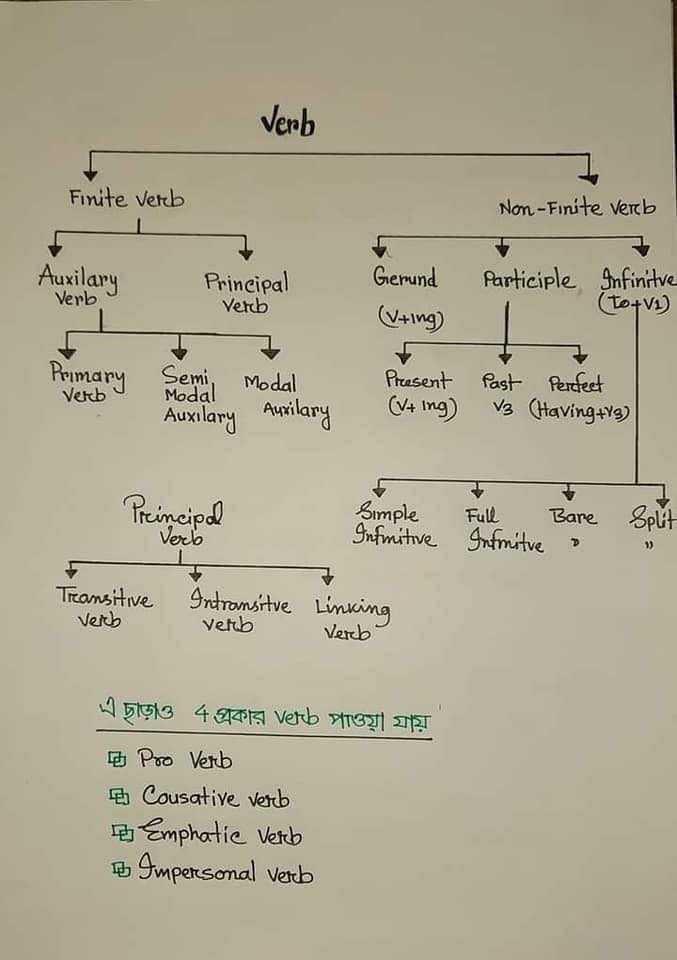 Verb
Finite Verb
Non-Finite Verb
Auxilary
Verb
Principal
Verb
Gerund
(V+ing)
Participle
Infinitve
(to+V1)
Primary
Verb
Semi
Modal
Auxilary
Modal
Auxilary
Present
(V+ing)
Past
V3
Perfect
(Having+V3)
Simple
Infinitive
Full
Infinitve
Bare
"
Split
"
Principal
Verb
Transitive
Verb
Intransitve
Verb
Linking
Verb
এ ছাড়াও 4 প্রকার Verb পাওয়া যায়
Pro Verb
Cousative Verb
Emphatic Verb
Impersonal Verb